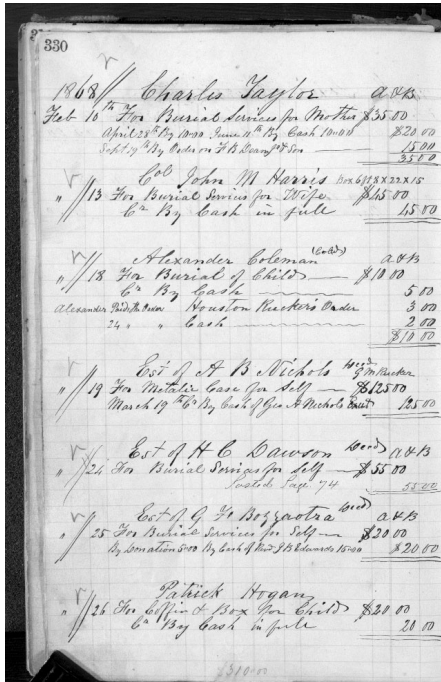 330
1868 // Charles Taylor A & B
Feb 10th For Burial Services for Mother $35 00
April 28th By 10.00 June 11th By Cash 10.00 $20 00
Sept 19th By Order on F B Deane & Son 15 00
35 00
Col John M Harris Box 6 ft 8 X 22 X 15
" // 13 For Burial Services for Wife $45 00
Cr By Cash in full 45 00
Alexander Coleman (Cold) A & B
" // 18 For Burial of Child $10 00
Cr By Cash 5 00
Alexander Houston Rucker's Order 3 00
24 " " Cash 2 00
$10 00
Est of A B Nichols Decd G M Rucker
" // 19 For Metalic Case for Self $125 00
March 19th Cr By Cash of Geo A Nichols 125 00
Est of H C Dawson Decd A & B
" // 24 For Burial Services for Self $55 00
Posted Page 74 55 00
Est of G F Decd A & B
" // 25 For Burial Services for Self $20 00
By Donation 5.00 By Cash of Revd J B Edwards 15.00 $20.00
Patrick Hogan
" // 26 For Coffin & Box for Child $20 00
Cr By Cash in full 20 00
$310.00